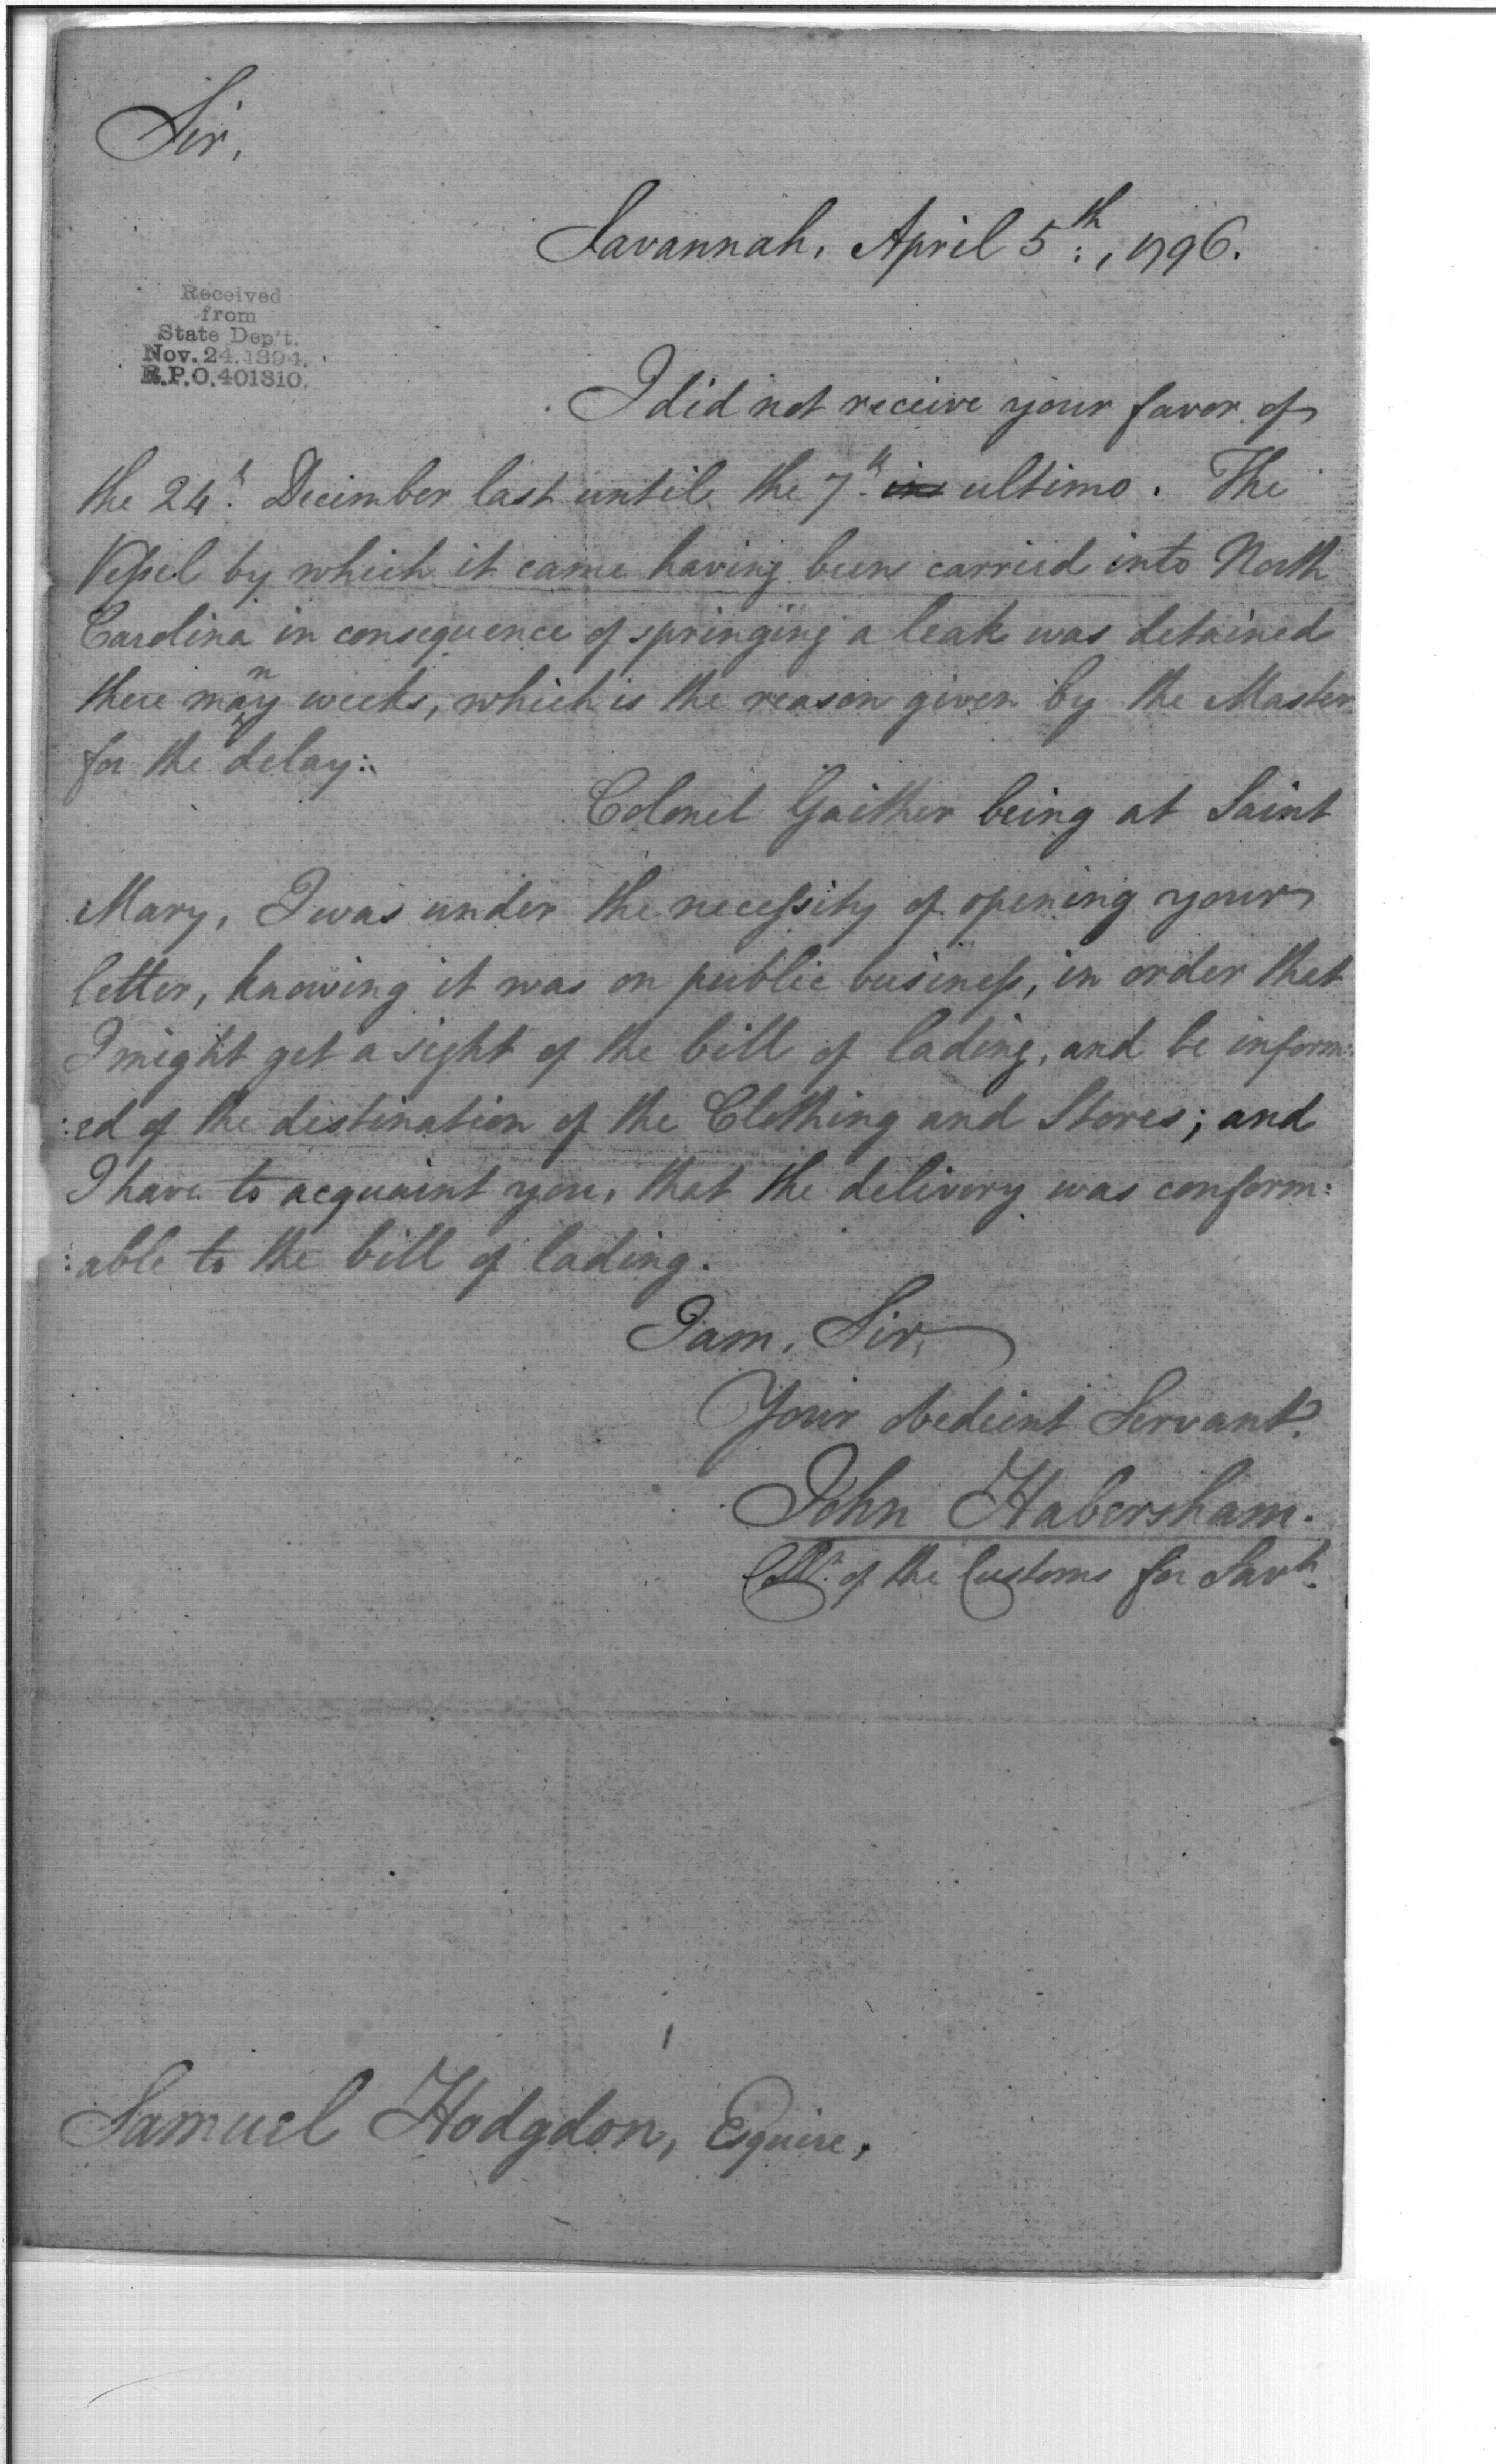 Sir,
Savannah, April 5th:, 1796.
Received
from
State Dep't.
Nov. 24. 1894.
R.P.O. 401310.
I did not receive your favor of
the 24h. December last until the 7th. ultimo. The
Veſsel by which it came having been carried into North
Carolina in consequence of springing a leak was detained
there many weeks, which is the reason given by the Master
for the delay:
Colonel Gaither being at Saint
Mary, I was under the neceſsity of opening your
letter, knowing it was on public busineſs, in order that
I might get a sight of the bill of lading, and be inform:
:ed of the destination of the Clothing and Stores; and
I have to acquaint you, that the delivery was conform:
:able to the bill of lading.
I am, Sir,
Your obedient Servant.
John Habersham.
Collr. of the Customs for Savh.
Samuel Hodgdon, Esquire.